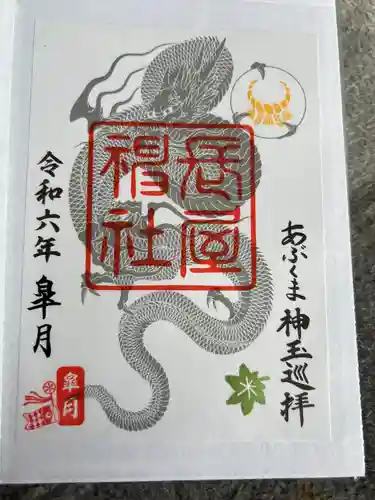 あぶくま神玉巡拝
長屋
神社
令和六年 皐月
皐月